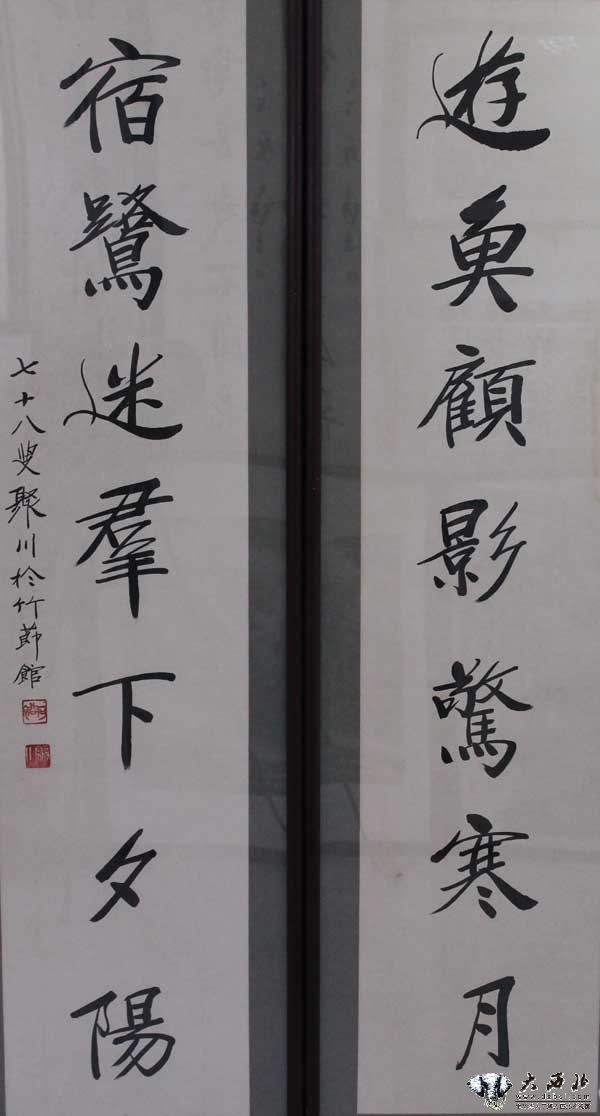 遊魚顧影驚寒月
宿鷺迷羣下夕陽
七十八叟聚川於竹節館
大西北